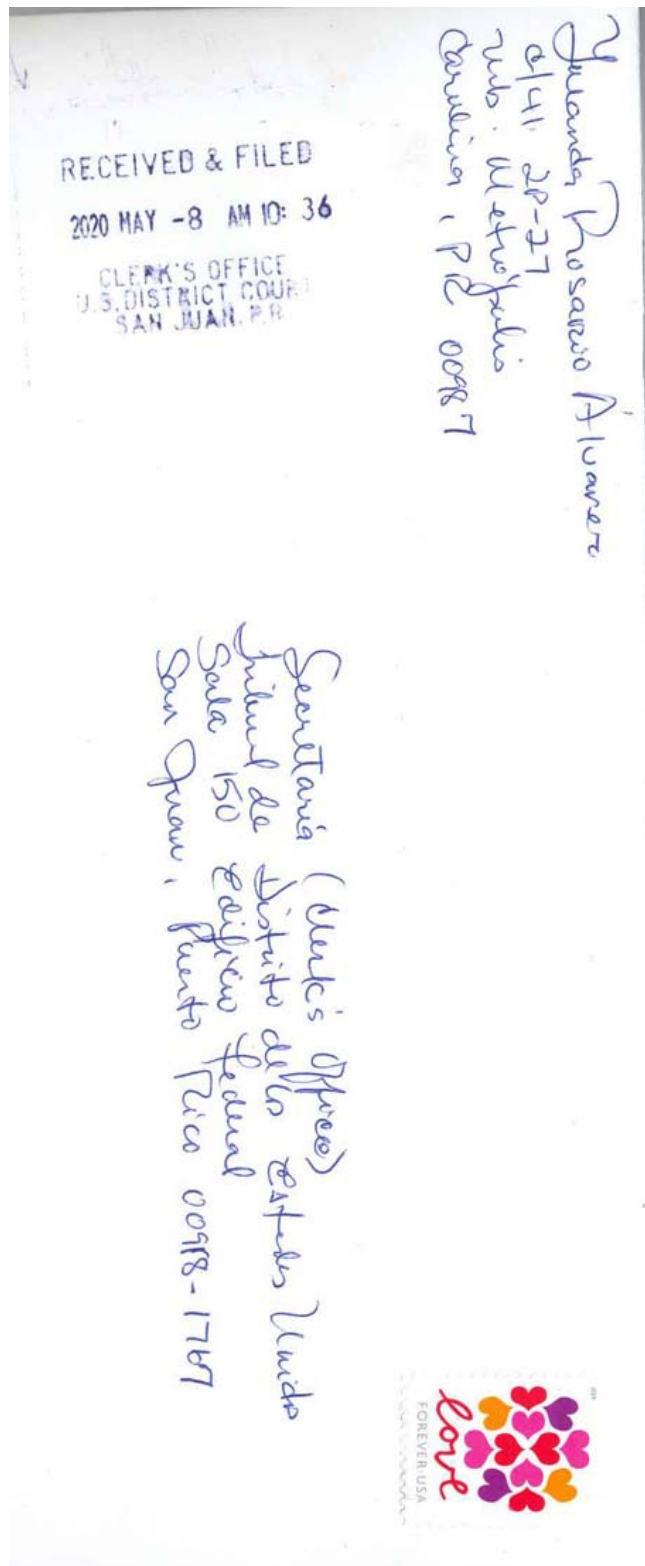 Yolanda Rosario Álvarez
c/41 2P-27
Urb. Metrópolis
Carolina, PR 00987
RECEIVED & FILED
2020 MAY -8 AM 10: 36
CLERK'S OFFICE
U.S. DISTRICT COURT
SAN JUAN, P.R
Secretaría (Clerk's Office)
Tribunal de Distrito de los Estados Unidos
Sala 150 Edificio Federal
San Juan, Puerto Rico 00918-1767
love
FOREVER USA